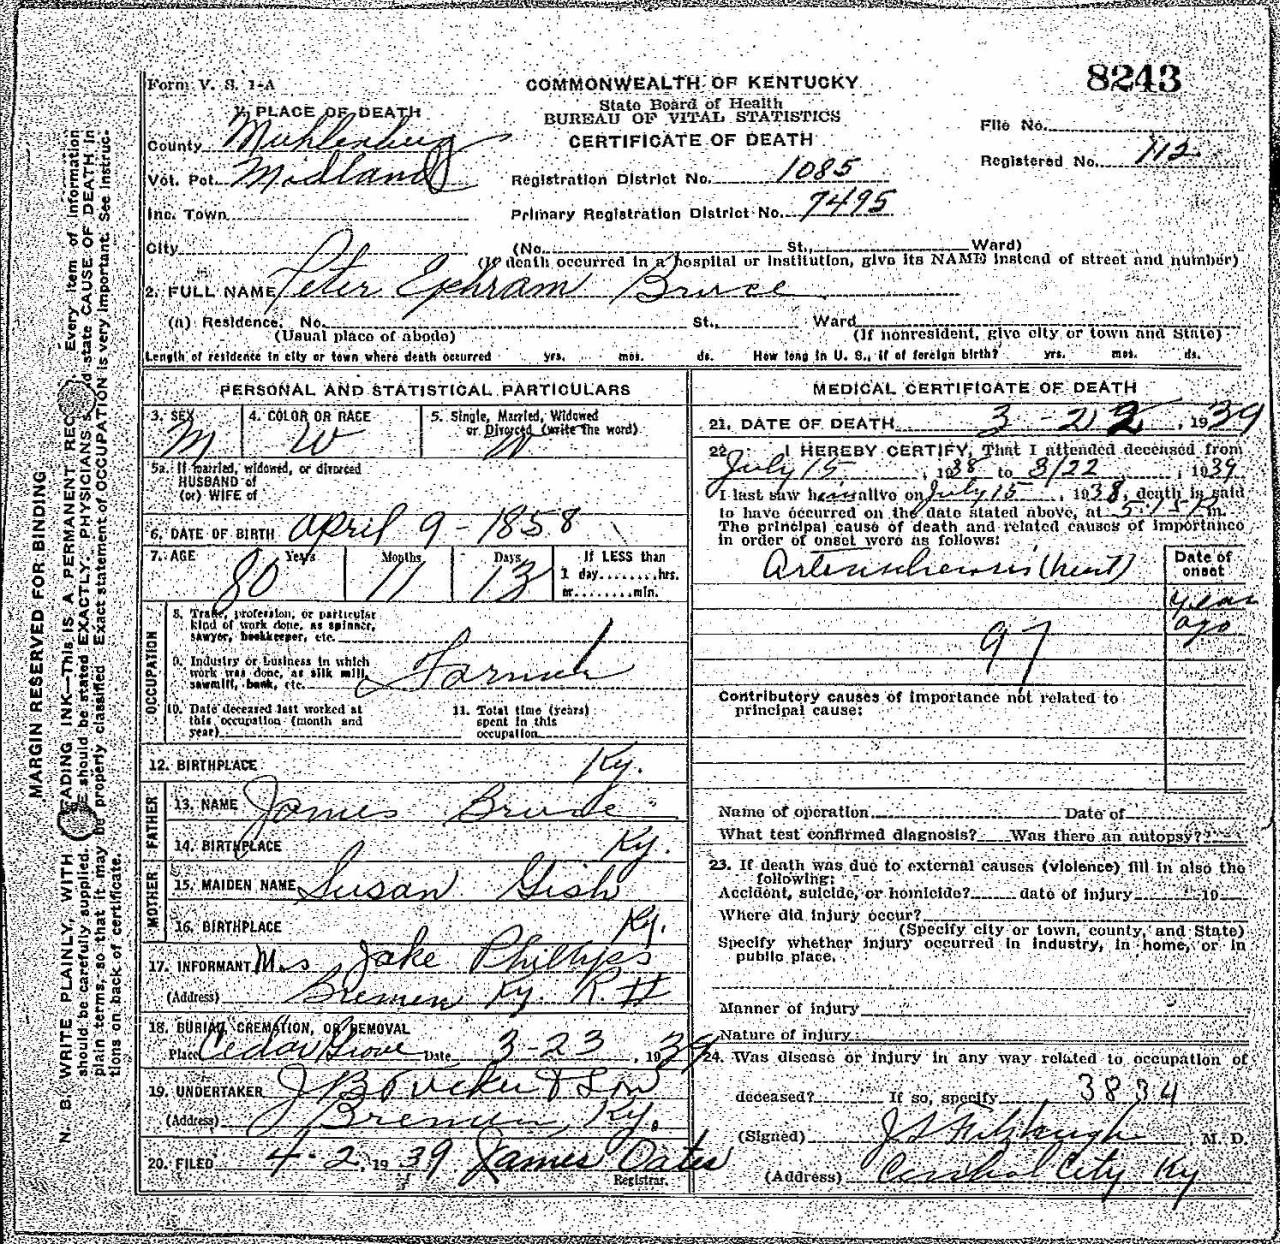 8243
Form V. S. 1-A
COMMONWEALTH OF KENTUCKY
State Board of Health
BUREAU OF VITAL STATISTICS
CERTIFICATE OF DEATH
File No.
Registered No. 112
1. PLACE OF DEATH
County Muhlenburg
Vot. Pct. Midland
Registration District No. 1085
Inc. Town
Primary Registration District No. 7495
City (No. St., Ward)
(If death occurred in a hospital or institution, give its NAME instead of street and number)
2. FULL NAME Peter Ephram Bruce
(a) Residence. No. St., Ward
(Usual place of abode) (If nonresident, give city or town and State)
Length of residence in city or town where death occurred yrs. mos. ds. How long in U. S., if of foreign birth? yrs. mos. ds.
PERSONAL AND STATISTICAL PARTICULARS
3. SEX M
4. COLOR OR RACE W
5. Single, Married, Widowed
or Divorced (write the word) W
5a. If married, widowed, or divorced
HUSBAND of
(or) WIFE of
6. DATE OF BIRTH April 9 - 1858
7. AGE 80 Years 11 Months 13 Days
If LESS than
1 day........hrs.
or........min.
OCCUPATION
8. Trade, profession, or particular
kind of work done, as spinner,
sawyer, bookkeeper, etc.
9. Industry or business in which
work was done, as silk mill,
sawmill, bank, etc. Farmer
10. Date deceased last worked at
this occupation (month and
year)
11. Total time (years)
spent in this
occupation
12. BIRTHPLACE Ky.
FATHER
13. NAME James Bruce
14. BIRTHPLACE Ky.
MOTHER
15. MAIDEN NAME Susan Gish
16. BIRTHPLACE Ky.
17. INFORMANT Mrs Jake Phillips
(Address) Bremen Ky. R.
18. BURIAL, CREMATION, OR REMOVAL
Place Cedar Grove Date 3-23, 1939
19. UNDERTAKER J B & Son
(Address) Bremen, Ky.
20. FILED 4-2 1939 James Oates
Registrar.
MEDICAL CERTIFICATE OF DEATH
21. DATE OF DEATH 3-22, 1939
22. I HEREBY CERTIFY, That I attended deceased from
July 15, 1938 to 3/22, 1939
I last saw him alive on July 15, 1938, death is said
to have occurred on the date stated above, at m.
The principal cause of death and related causes of importance
in order of onset were as follows:
Date of
onset
(heart)
year
ago
97
Contributory causes of importance not related to
principal cause:
Name of operation Date of
What test confirmed diagnosis? Was there an autopsy?
23. If death was due to external causes (violence) fill in also the
following:
Accident, suicide, or homicide? date of injury 19
Where did injury occur?
(Specify city or town, county, and State)
Specify whether injury occurred in industry, in home, or in
public place.
Manner of injury
Nature of injury
24. Was disease or injury in any way related to occupation of
deceased? If so, specify 3834
(Signed) Fitzhugh M. D.
(Address) Central City Ky
MARGIN RESERVED FOR BINDING
N. B. WRITE PLAINLY, WITH FADING INK—THIS IS A PERMANENT RECORD. Every item of information
should be carefully supplied. should be stated EXACTLY. PHYSICIANS should state CAUSE OF DEATH in
plain terms, so that it may be properly classified. Exact statement of OCCUPATION is very important. See instruc-
tions on back of certificate.